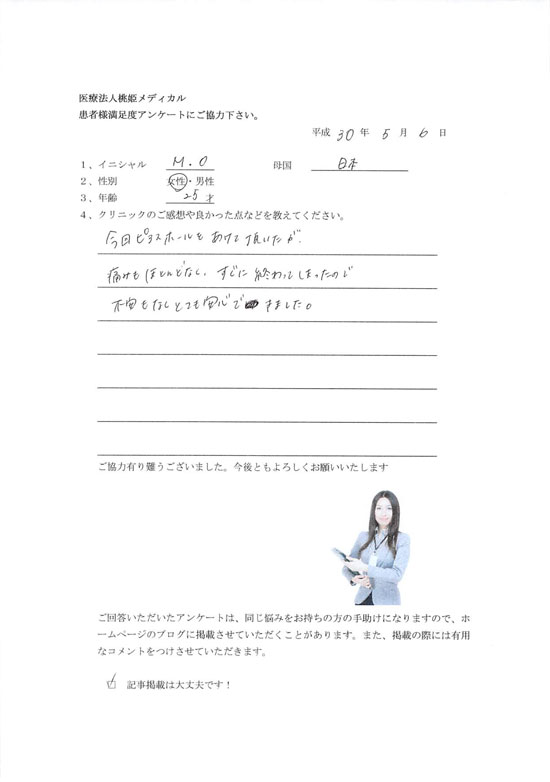 医療法人桃姫メディカル
患者様満足度アンケートにご協力下さい。
平成 30 年 5 月 6 日
1、イニシャル M.O 母国 日本
2、性別 女性・男性
3、年齢 25才
4、クリニックのご感想や良かった点などを教えてください。
今日ピアスホールをあけて頂いたが、
痛みもほとんどなし、すぐに終わってしまったので
不安もなしとても安心できました。
ご協力有り難うございました。今後ともよろしくお願いいたします
ご回答いただいたアンケートは、同じ悩みをお持ちの方の手助けになりますので、ホ
ームページのブログに掲載させていただくことがあります。また、掲載の際には有用
なコメントをつけさせていただきます。
記事掲載は大丈夫です！